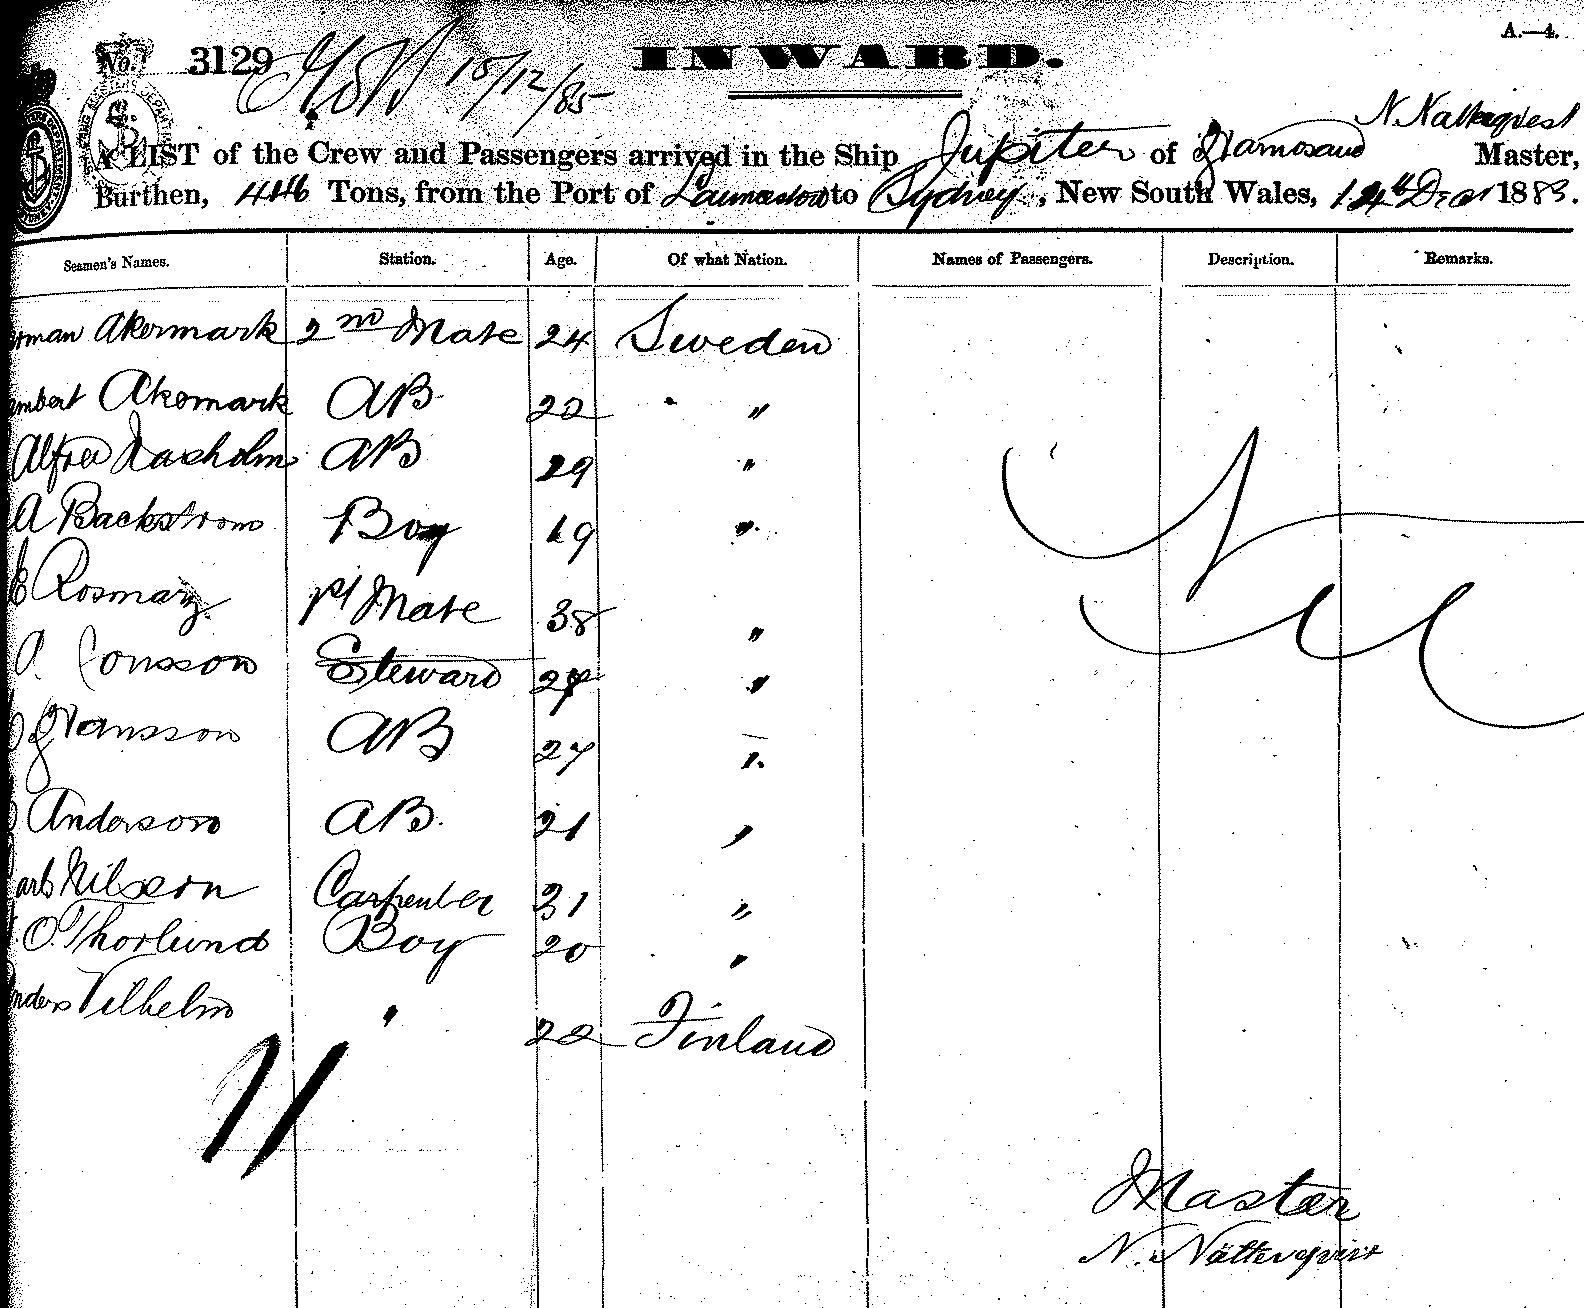 A.—4.
No. 3129 15/12/85 INWARD.
N. Natterqvist
A LIST of the Crew and Passengers arrived in the Ship Jupiter of Hamosand Master,
Burthen, 446 Tons, from the Port of Launceston to Sydney, New South Wales, 14th Decr 1885.
Seamen's Names. Station. Age. Of what Nation. Names of Passengers. Description. Remarks.
rman Akermark 2nd Mate 24 Sweden
mbert Akemark AB 22 "
Alfred AB 29 "
A Backstrom Boy 19 "
E Rosmary 1st Mate 38 "
P. Jonsson Steward 27 "
Hansson AB 27 "
Anderson AB. 21 "
arl Nilsson Carpenter 31 "
O. Thorlund Boy 20 "
nders Vilhelm " 22 Finland
11
Master
N. Nätterqvist